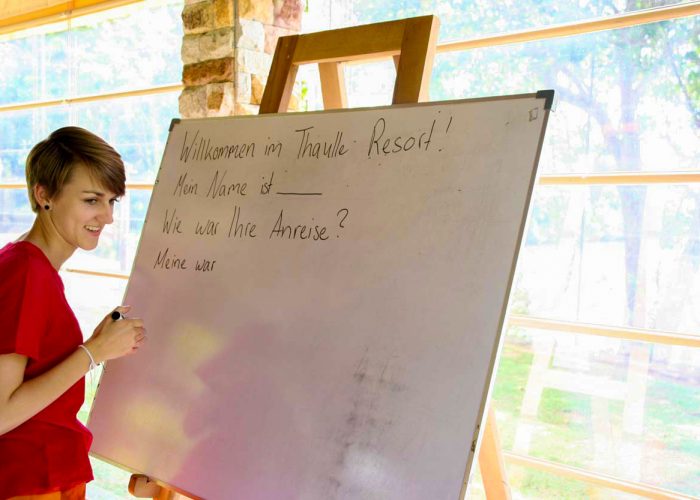 Willkommen im Thaulle Resort!
Mein Name ist ____
Wie war Ihre Anreise?
Meine war